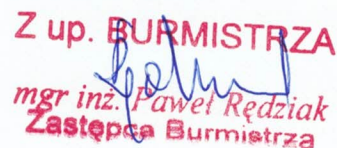 Z up. BURMISTRZA
mgr inż. Paweł Rędziak
Zastępca Burmistrza